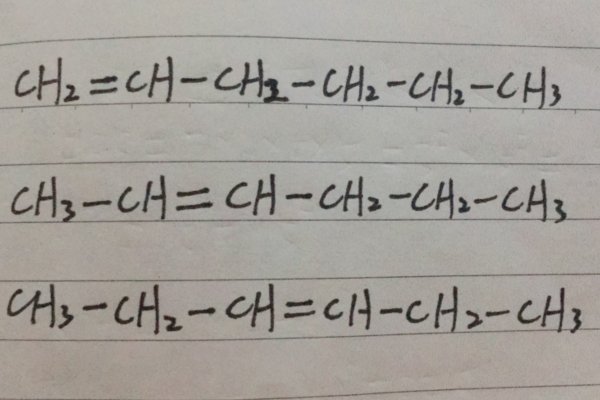 CH₂=CH-CH₂-CH₂-CH₂-CH₃
CH₃-CH=CH-CH₂-CH₂-CH₃
CH₃-CH₂-CH=CH-CH₂-CH₃